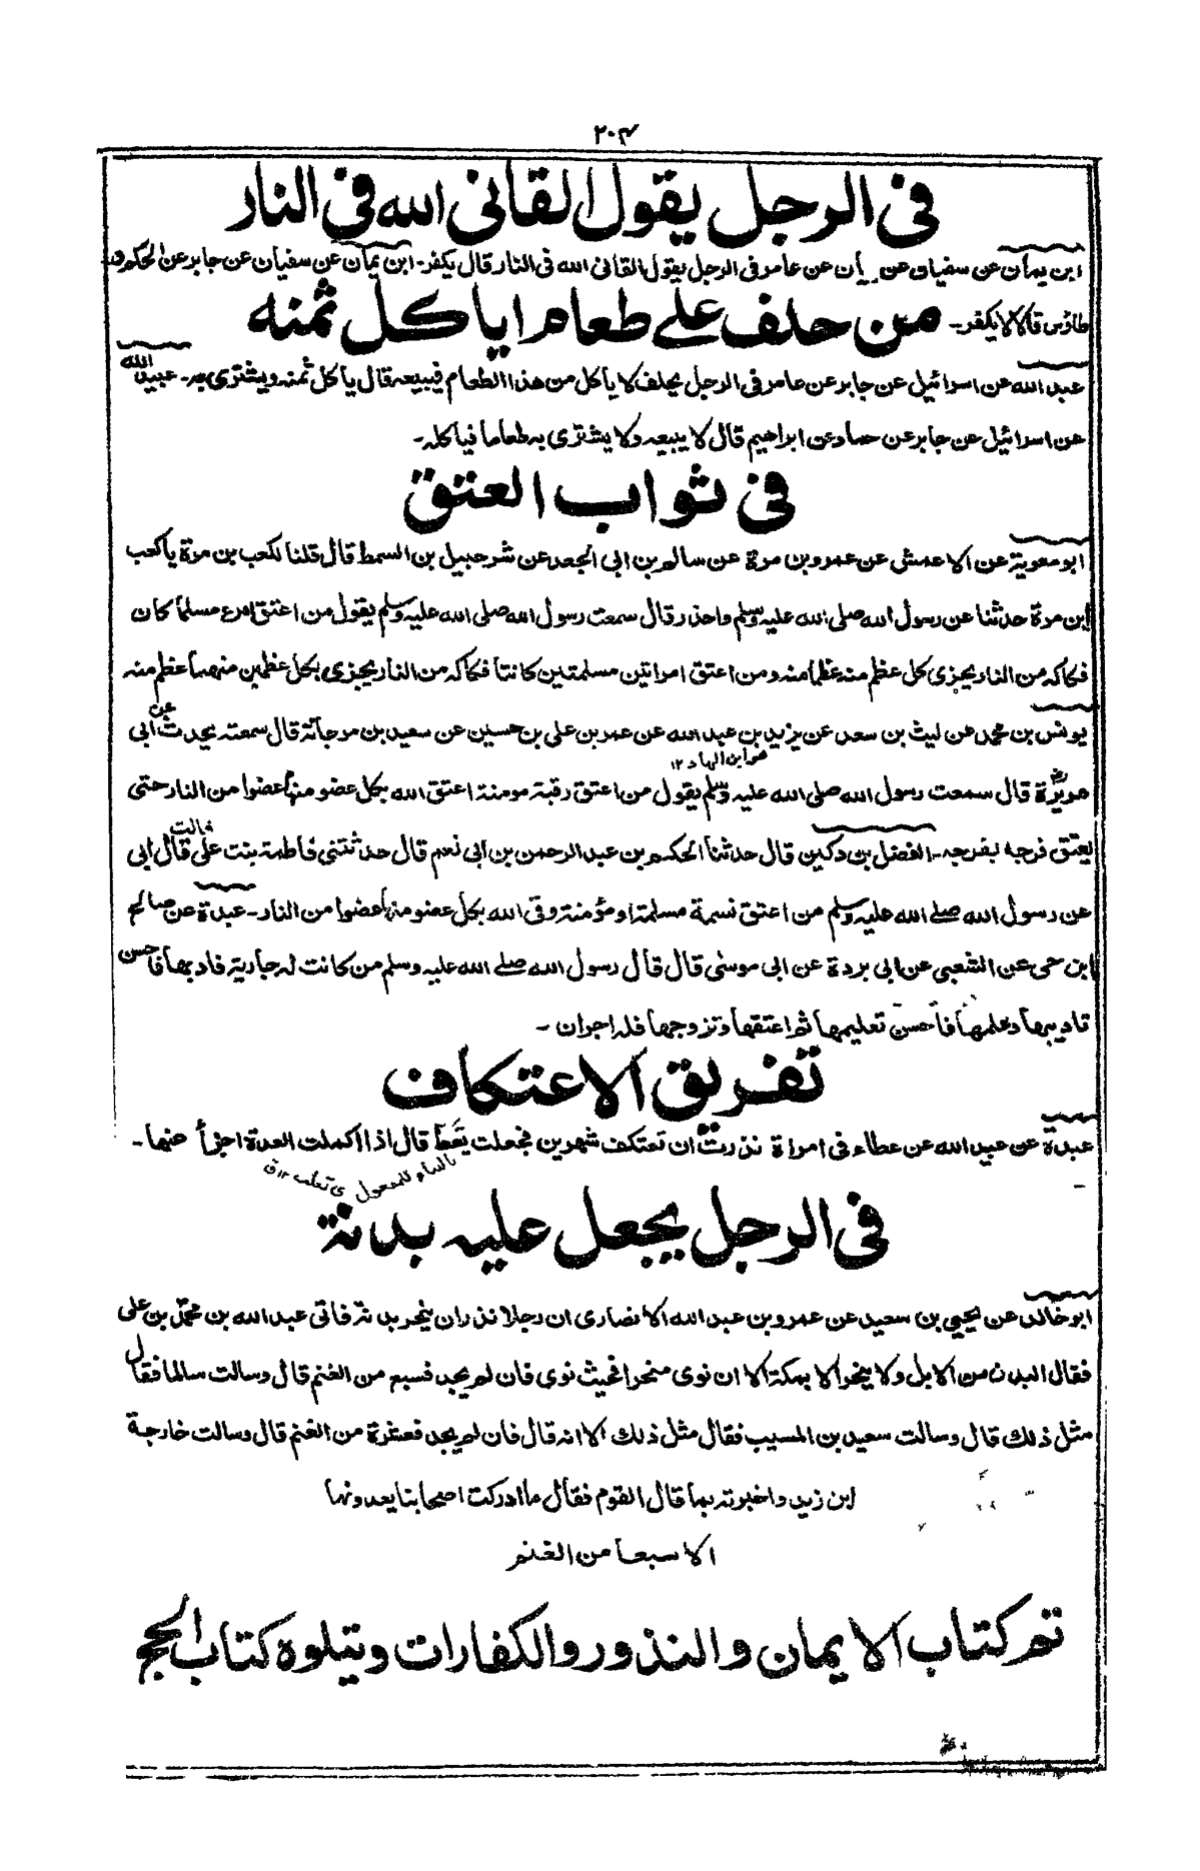 ٢٠٤
فى الرجل يقول القانى الله فى النار
ابن يمان عن سفيان عن عن عامر فى الرجل يقول القانى الله فى النار قال يكفر - ابن يمان عن سفيان عن جابر عن الحكم و
طاؤس قالا لا يكفر - من حلف على طعام ايا كل ثمنه
عبد الله عن اسرائيل عن جابر عن عامر فى الرجل يحلف لا ياكل من هذا الطعام فيبيعه قال ياكل ثمنه ويشترى به - عبيد الله
عن اسرائيل عن جابر عن حماد عن ابراهيم قال لا يبيعه ولا يشترى به طعاما فياكله -
فى ثواب العتق
ابو معوية عن الاعمش عن عمرو بن مرة عن سالم بن ابى الجعد عن شرحبيل بن السمط قال قلنا لكعب بن مرة يا كعب
ابن مرة حدثنا عن رسول الله صلى الله عليه وسلم واحذر قال سمعت رسول الله صلى الله عليه وسلم يقول من اعتق امرء مسلما كان
فكاكه من النار يجزى كل عظم منه عظما منه ومن اعتق امراتين مسلمتين كانتا فكاكه من النار يجزى بكل عظمين منهما عظم منه
يونس بن محمد عن ليث بن سعد عن يزيد بن عبد الله عن عمر بن على بن حسين عن سعيد بن مرجانة قال سمعته يحدث عن ابى
هو ابن الهاد ١٢
هريرة رض قال سمعت رسول الله صلى الله عليه وسلم يقول من اعتق رقبة مومنة اعتق الله بكل عضو منها عضوا من النار حتى
يعتق فرجه بفرجه - الفضل بن دكين قال حدثنا الحكم بن عبد الرحمن بن ابى نعم قال حدثتنى فاطمة بنت على قالت قال ابى
عن رسول الله صلى الله عليه وسلم من اعتق نسمة مسلمة او مؤمنة وقى الله بكل عضو منها عضوا من النار - عبدة عن صالح
ابن حى عن الشعبى عن ابى بردة عن ابى موسى قال قال رسول الله صلى الله عليه وسلم من كانت له جارية فادبها فاحسن
تاديبها وعلمها فاحسن تعليمها ثم اعتقها وتزوجها فله اجران -
تفريق الاعتكاف
عبدة عن عبيد الله عن عطاء فى امراة نذرت ان تعتكف شهرين فجعلت يقطع قال اذا اكملت العدة اجزأ عنها -
بالبناء للمفعول
فى الرجل يجعل عليه بدنة
ابو خالد عن يحيى بن سعيد عن عمرو بن عبد الله الانصارى ان رجلا نذر ان ينحر بدنة فاتى عبد الله بن محمد بن على
فقال البدن من الابل ولا ينحر الا بمكة الا ان نوى منحرا فحيث نوى فان لم يجد فسبع من الغنم قال وسالت سالما فقال
مثل ذلك قال وسالت سعيد بن المسيب فقال مثل ذلك الا انه قال فان لم يجد فعشرة من الغنم قال وسالت خارجة
ابن زيد واخبرته بما قال القوم فقال ما ادركت اصحابنا يعدونها
الا سبعا من الغنم
تم كتاب الايمان والنذور والكفارات ويتلوه كتاب الحج